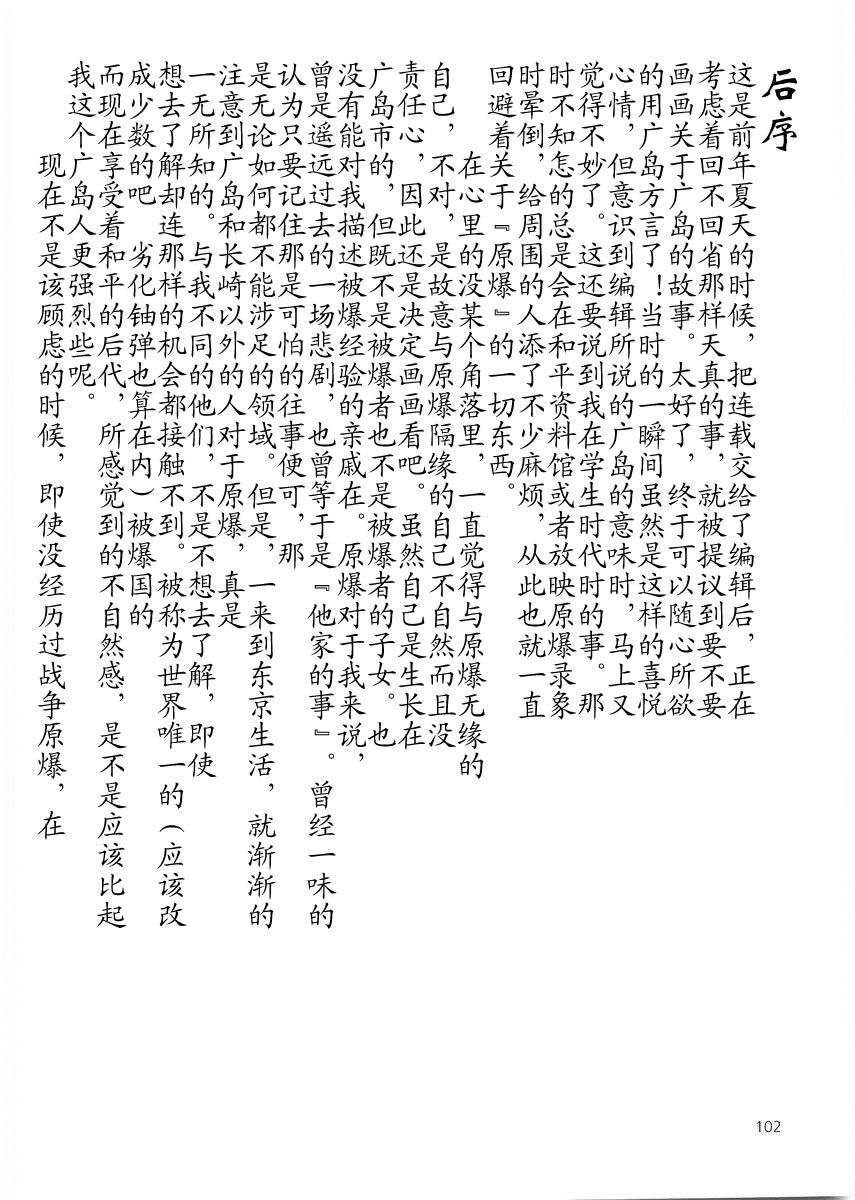 后序
这是前年夏天的时候，把连载交给了编辑后，正在
考虑着回不回省那样天真的事，就被提议到要不要
画画关于广岛的故事。太好了，终于可以随心所欲
的用广岛方言了！当时的一瞬间虽然是这样的喜悦
心情，但意识到编辑所说的广岛的意味时，马上又
觉得不妙了。这还要说到我在学生时代时的事。那
时不知怎的总是会在和平资料馆或者放映原爆录象
时晕倒，给周围的人添了不少麻烦，从此也就一直
回避着关于『原爆』的一切东西。
在心里的没某个角落里，一直觉得与原爆无缘的
自己，不对，是故意与原爆隔缘的自己不自然而且没
责任心，因此还是决定画画看吧。虽然自己是生长在
广岛市的，但既不是被爆者也不是被爆者的子女。也
没有能对我描述被爆经验的亲戚在。原爆对于我来说，
曾是遥远过去的一场悲剧，也曾等于是『他家的事』。曾经一味的
认为只要记住那是可怕的往事便可，那
是无论如何都不能涉足的领域。但是，一来到东京生活，就渐渐的
注意到广岛和长崎以外的人对于原爆，真是
一无所知的。与我不同的他们，不是不想去了解，即使
想去了解却连那样的机会都接触不到。被称为世界唯一的（应该改
成少数的吧 劣化铀弹也算在内）被爆国的
而现在享受着和平的后代，所感觉到的不自然感，是不是应该比起
我这个广岛人更强烈些呢。
现在不是该顾虑的时候，即使没经历过战争原爆，在
102